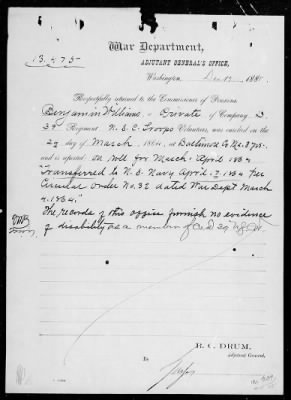 13,475
War Department,
ADJUTANT GENERAL'S OFFICE,
Washington, Dec 17, 1881
Respectfully returned to the Commissioner of Pensions.
Benjamin Williams, a Private of Company D,
39 Regiment U.S.C. Troops Volunteers, was enrolled on the
22 day of March, 1864, at Baltimore Co Md. 3 yrs.
and is reported on roll for March & April 1864
Transferred to U.S. Navy April 1864 per
Circular Order No. 32 dated War Dept March
4. 1864.
The records of this office furnish no evidence
of disability as a member of Co. D 39
R. C. DRUM,
Adjutant General,
By